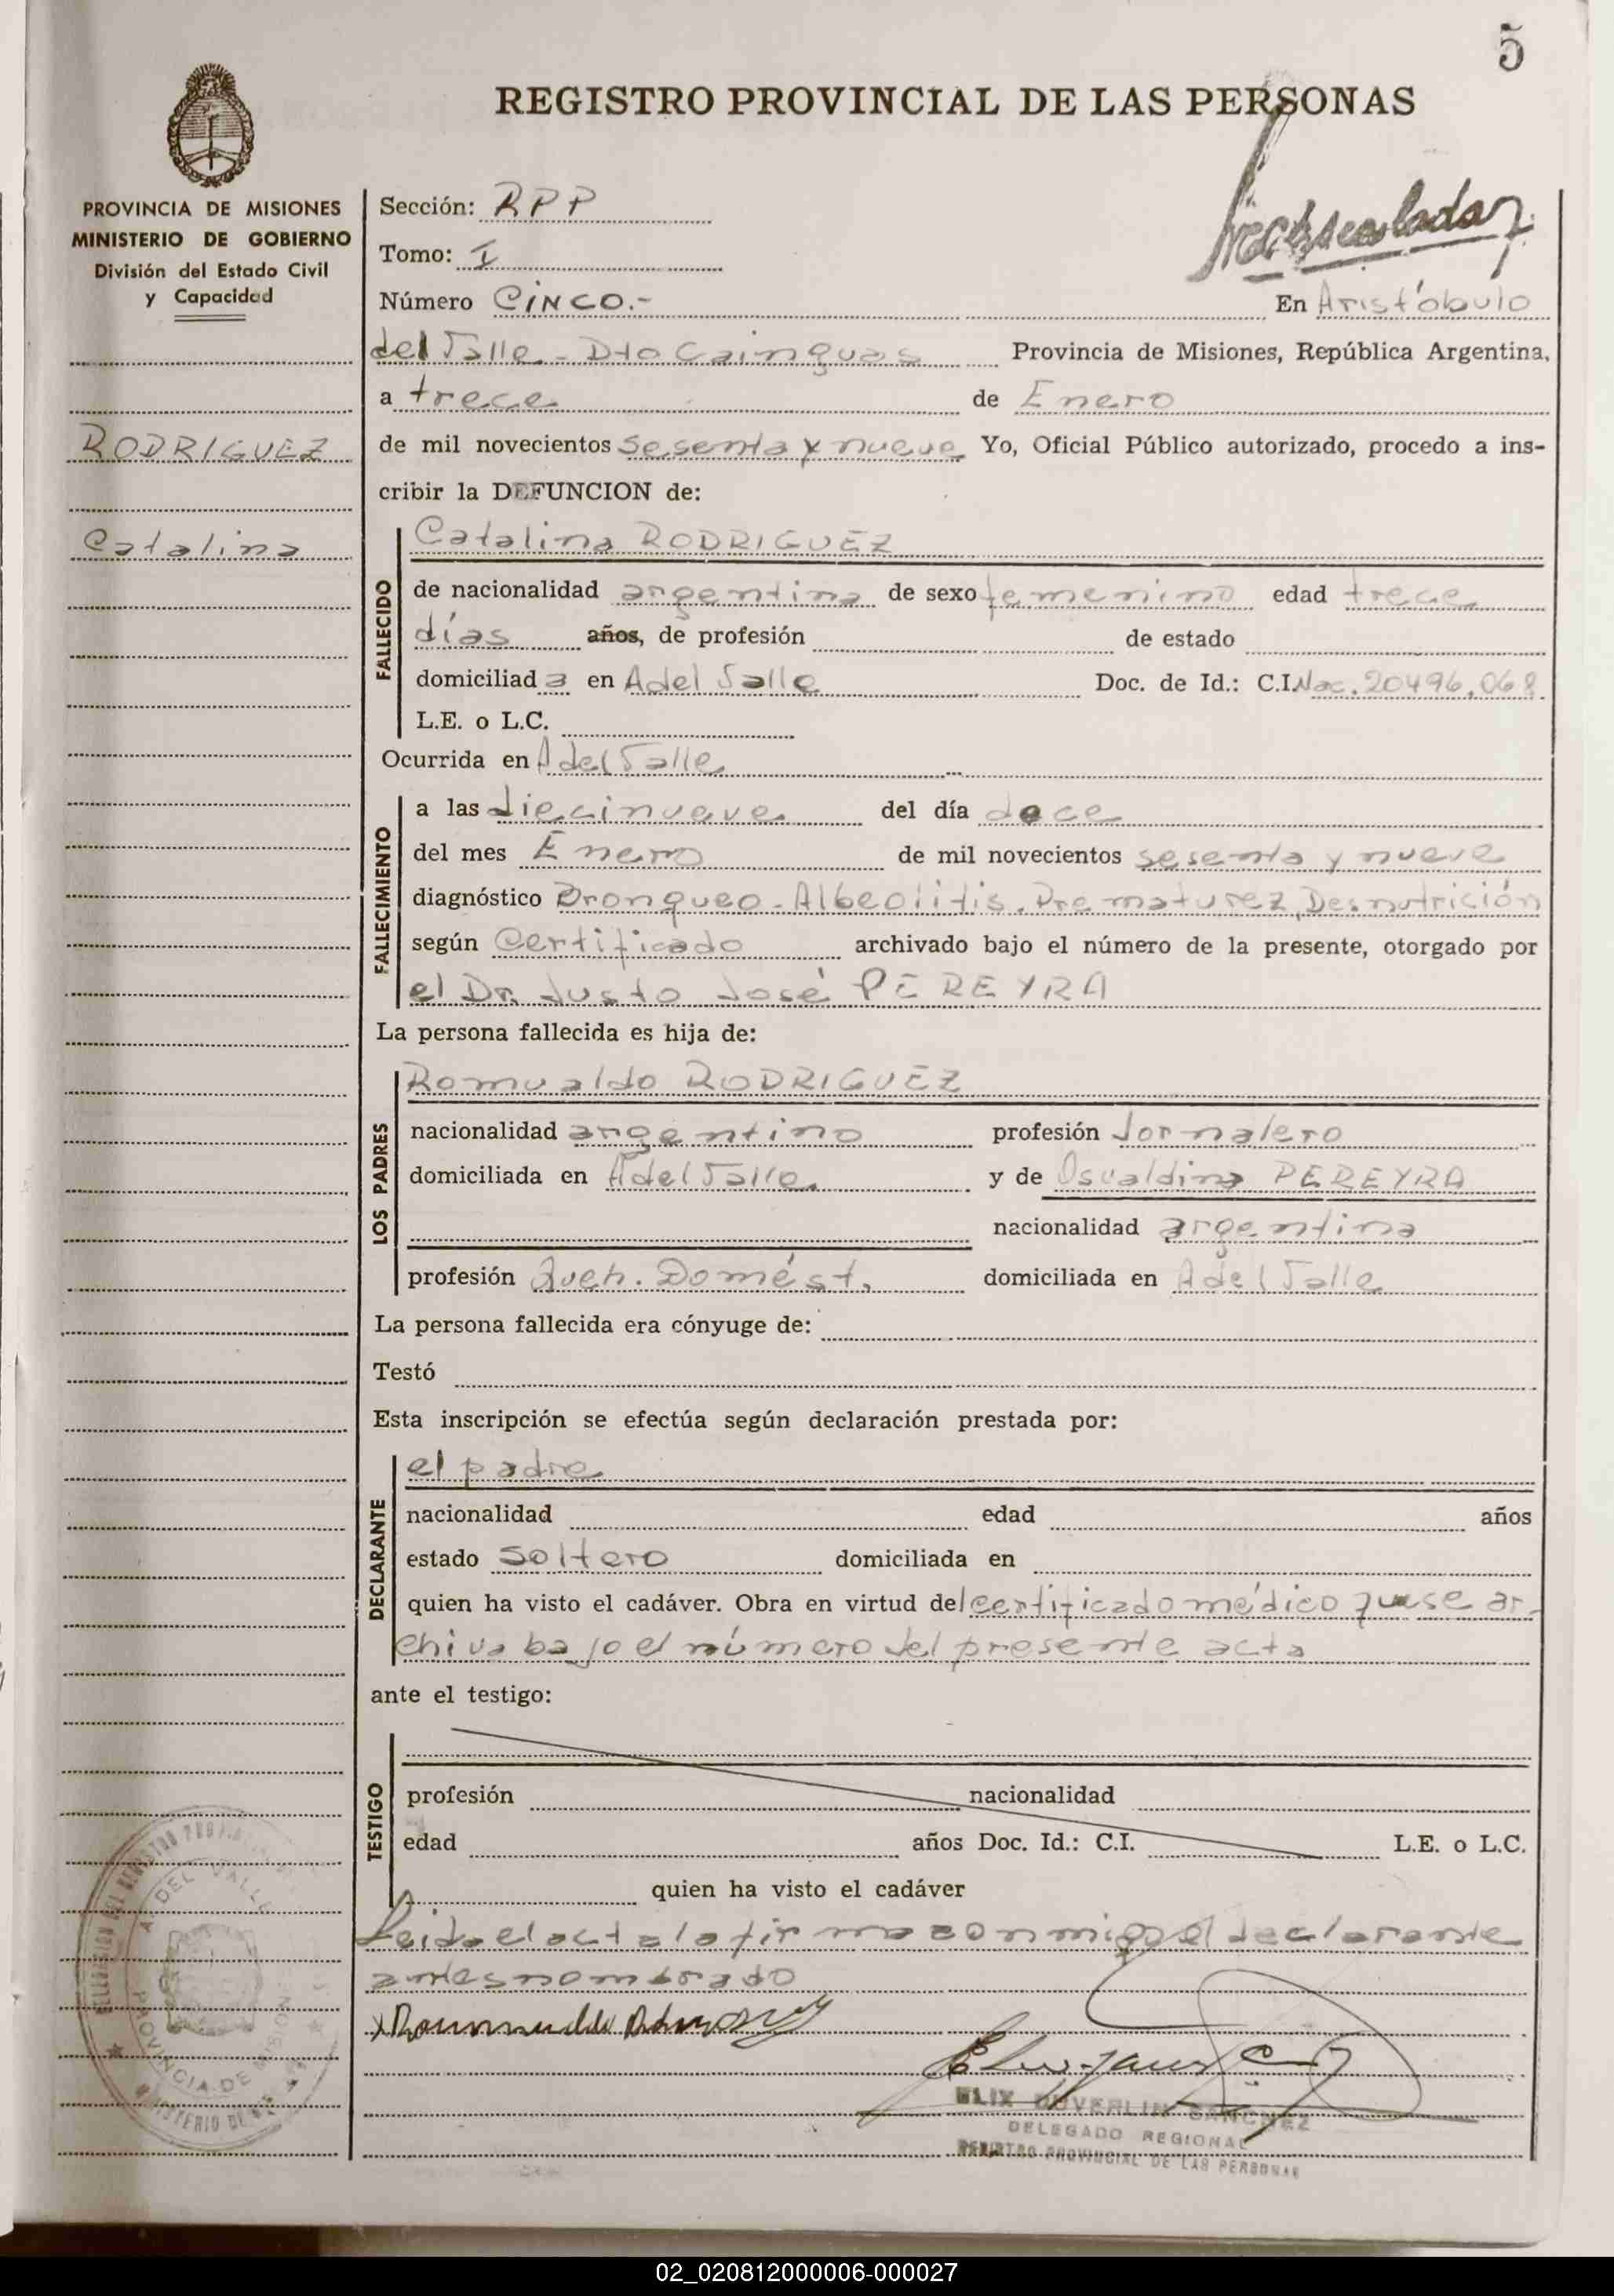 5
REGISTRO PROVINCIAL DE LAS PERSONAS
PROVINCIA DE MISIONES
MINISTERIO DE GOBIERNO
División del Estado Civil
y Capacidad
Sección: RPP
Tomo: I
Número CINCO.- En Aristóbulo
del Valle - Dto Cainguas Provincia de Misiones, República Argentina,
a trece de Enero
RODRIGUEZ
de mil novecientos sesenta y nueve Yo, Oficial Público autorizado, procedo a ins-
cribir la DEFUNCION de:
Catalina
Catalina RODRIGUEZ
FALLECIDO
de nacionalidad argentina de sexo femenino edad trece
días años, de profesión de estado
domiciliad a en A del Valle Doc. de Id.: C.I. Nac. 20496.068
L.E. o L.C.
Ocurrida en A del Valle
FALLECIMIENTO
a las diecinueve del día doce
del mes Enero de mil novecientos sesenta y nueve
diagnóstico Bronqueo - Albeolitis. Prematurez, Desnutrición
según Certificado archivado bajo el número de la presente, otorgado por
el Dr. Justo José PEREYRA
La persona fallecida es hija de:
LOS PADRES
Romualdo RODRIGUEZ
nacionalidad argentino profesión Jornalero
domiciliada en A del Valle y de Osvaldina PEREYRA
nacionalidad argentina
profesión Queh. Domést. domiciliada en A del Valle
La persona fallecida era cónyuge de:
Testó
Esta inscripción se efectúa según declaración prestada por:
DECLARANTE
el padre
nacionalidad edad años
estado Soltero domiciliada en
quien ha visto el cadáver. Obra en virtud del certificado médico que se ar-
chiva bajo el número del presente acta
ante el testigo:
TESTIGO
profesión nacionalidad
edad años Doc. Id.: C.I. L.E. o L.C.
quien ha visto el cadáver
Leida el acta la firma conmigo el declarante
antes nombrado
A DEL VALLE
PROVINCIA DE MISIONES
ELIX DUVERLIN SANCHEZ
DELEGADO REGIONAL
REGISTRO PROVINCIAL DE LAS PERSONAS
02_020812000006-000027